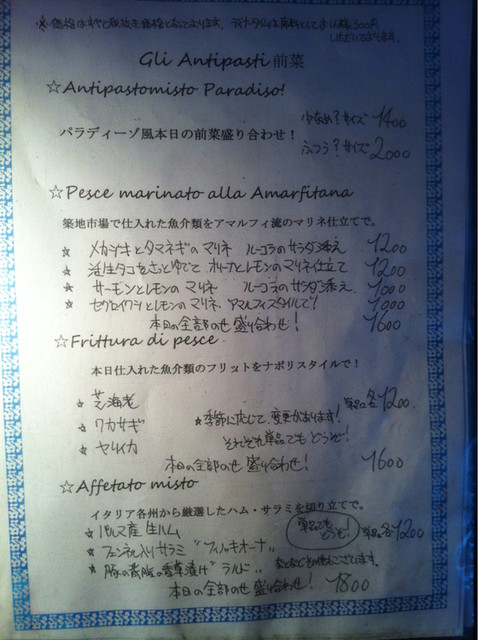 ※価格はすべて税抜き価格となっております。ディナータイムは席料としてお1人様300円
いただいております。
Gli Antipasti 前菜
☆Antipastomisto Paradiso!
少なめ?サイズ 1400
パラディーゾ風本日の前菜盛り合わせ!
ふつう?サイズ 2000
☆Pesce marinato alla Amarfitana
築地市場で仕入れた魚介類をアマルフィ流のマリネ仕立てで。
☆ メカジキとタマネギのマリネ ルーコラのサラダ添え 1200
☆ 活生タコをさっとゆでて オリーブとレモンのマリネ仕立て 1200
☆ サーモンとレモンのマリネ ルーコラのサラダ添え 1000
☆ セグロイワシとレモンのマリネ アマルフィスタイルで! 1000
本日の全部のせ 盛り合わせ! 1600
☆Frittura di pesce
本日仕入れた魚介類のフリットをナポリスタイルで!
☆ 芝海老 単品各1200
☆ ワカサギ ★季節に応じて変更があります!
☆ ヤリイカ それぞれ単品でもどうぞ!
本日の全部のせ 盛り合わせ! 1600
☆Affetato misto
イタリア各州から厳選したハム・サラミを切り立てで。
☆ パルマ産 生ハム 単品でもどうぞ! 単品各1200
☆ フェンネル入りサラミ "フィノッキオーナ"
☆ 豚の背脂の香草漬け "ラルド"
本日の全部のせ 盛り合わせ! 1800